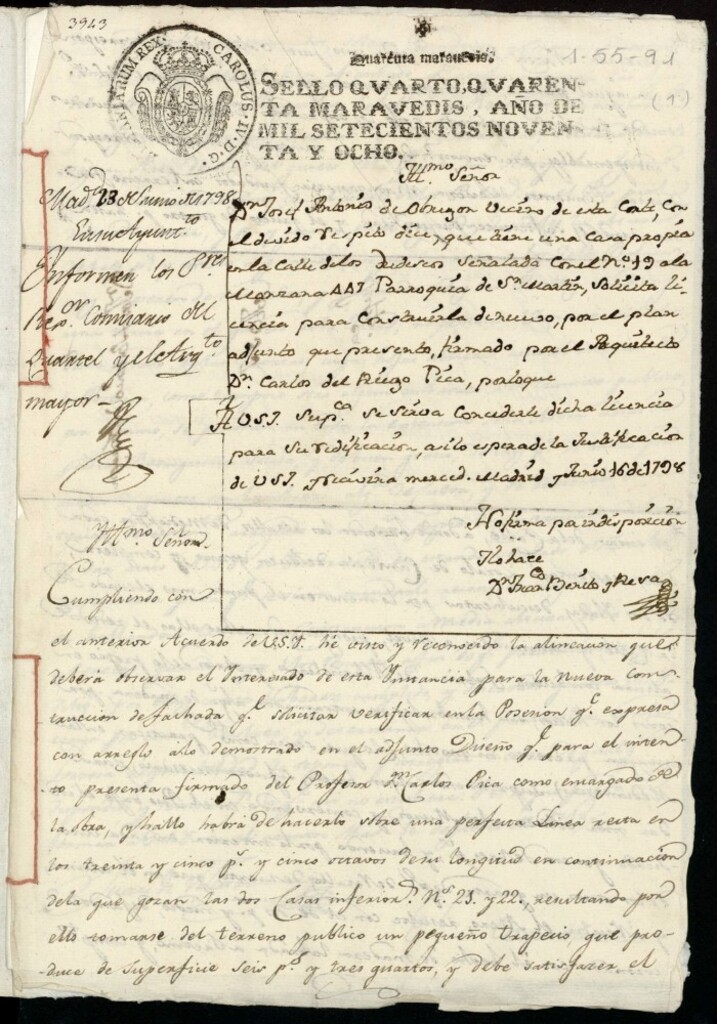 3943
Quarenta maravedis.
1-55-91
(1)
HISPANIARUM REX. CAROLUS. IV. D. G.
SELLO QVARTO, QVAREN-
TA MARAVEDIS, AÑO DE
MIL SETECIENTOS NOVEN-
TA Y OCHO.
Madd. 23 de Junio de 1798
En su Ayuntto
Informen los Sres
Regor Comisario del
Quartel y el Arqto
mayor-
Illmo. Señor
Dn. Josef Antonio de Obregon Vecino de esta Corte, con
el devido respeto dice, que tiene una Casa propia
en la Calle de los Tudescos Señalada con el No. 19 de la
Manzana Parroquia de Sn. Martin, solicita li-
cencia para Construirla de nuevo, por el plan
adjunto que presento, firmado por el Arquitecto
Dn. Carlos del Riego Pica, por lo que
A V.S.I. Supca. Se Sirva Concederle dicha licencia
para su redificacion, asi lo espera de la Justificacion
de V.S.I. y recivira merced. Madrid y Junio 16 de 1798
No firma por indisposicion
Yo hace
Dn. Franco Benito y
Illmo. Señor.
Cumpliendo con
el anterior Acuerdo de V.S.I. hé visto y reconocido la alineacion que
deberá observar el Interesado de esta Instancia para la nueva Cons-
truccion de fachada qe. solicitar verificar en la Posesion qe. expresa
con arreglo alo demostrado en el adjunto Diseño qe. para el inten-
to presenta firmado del Profesor Dn. Carlos Pica como encargado de
la obra, y hallo habrá de hacerlo sobre una perfecta Linea recta en
los treinta y cinco ps. y cinco octavos de su longitud en continuacion
dela que gozan las dos Casas inferiors. Nos. 21. y 22., resultando por
ello tomarse del terreno publico un pequeño trapecio que pro-
duce de superficie seis ps. y tres quartos, y debe satisfazer el